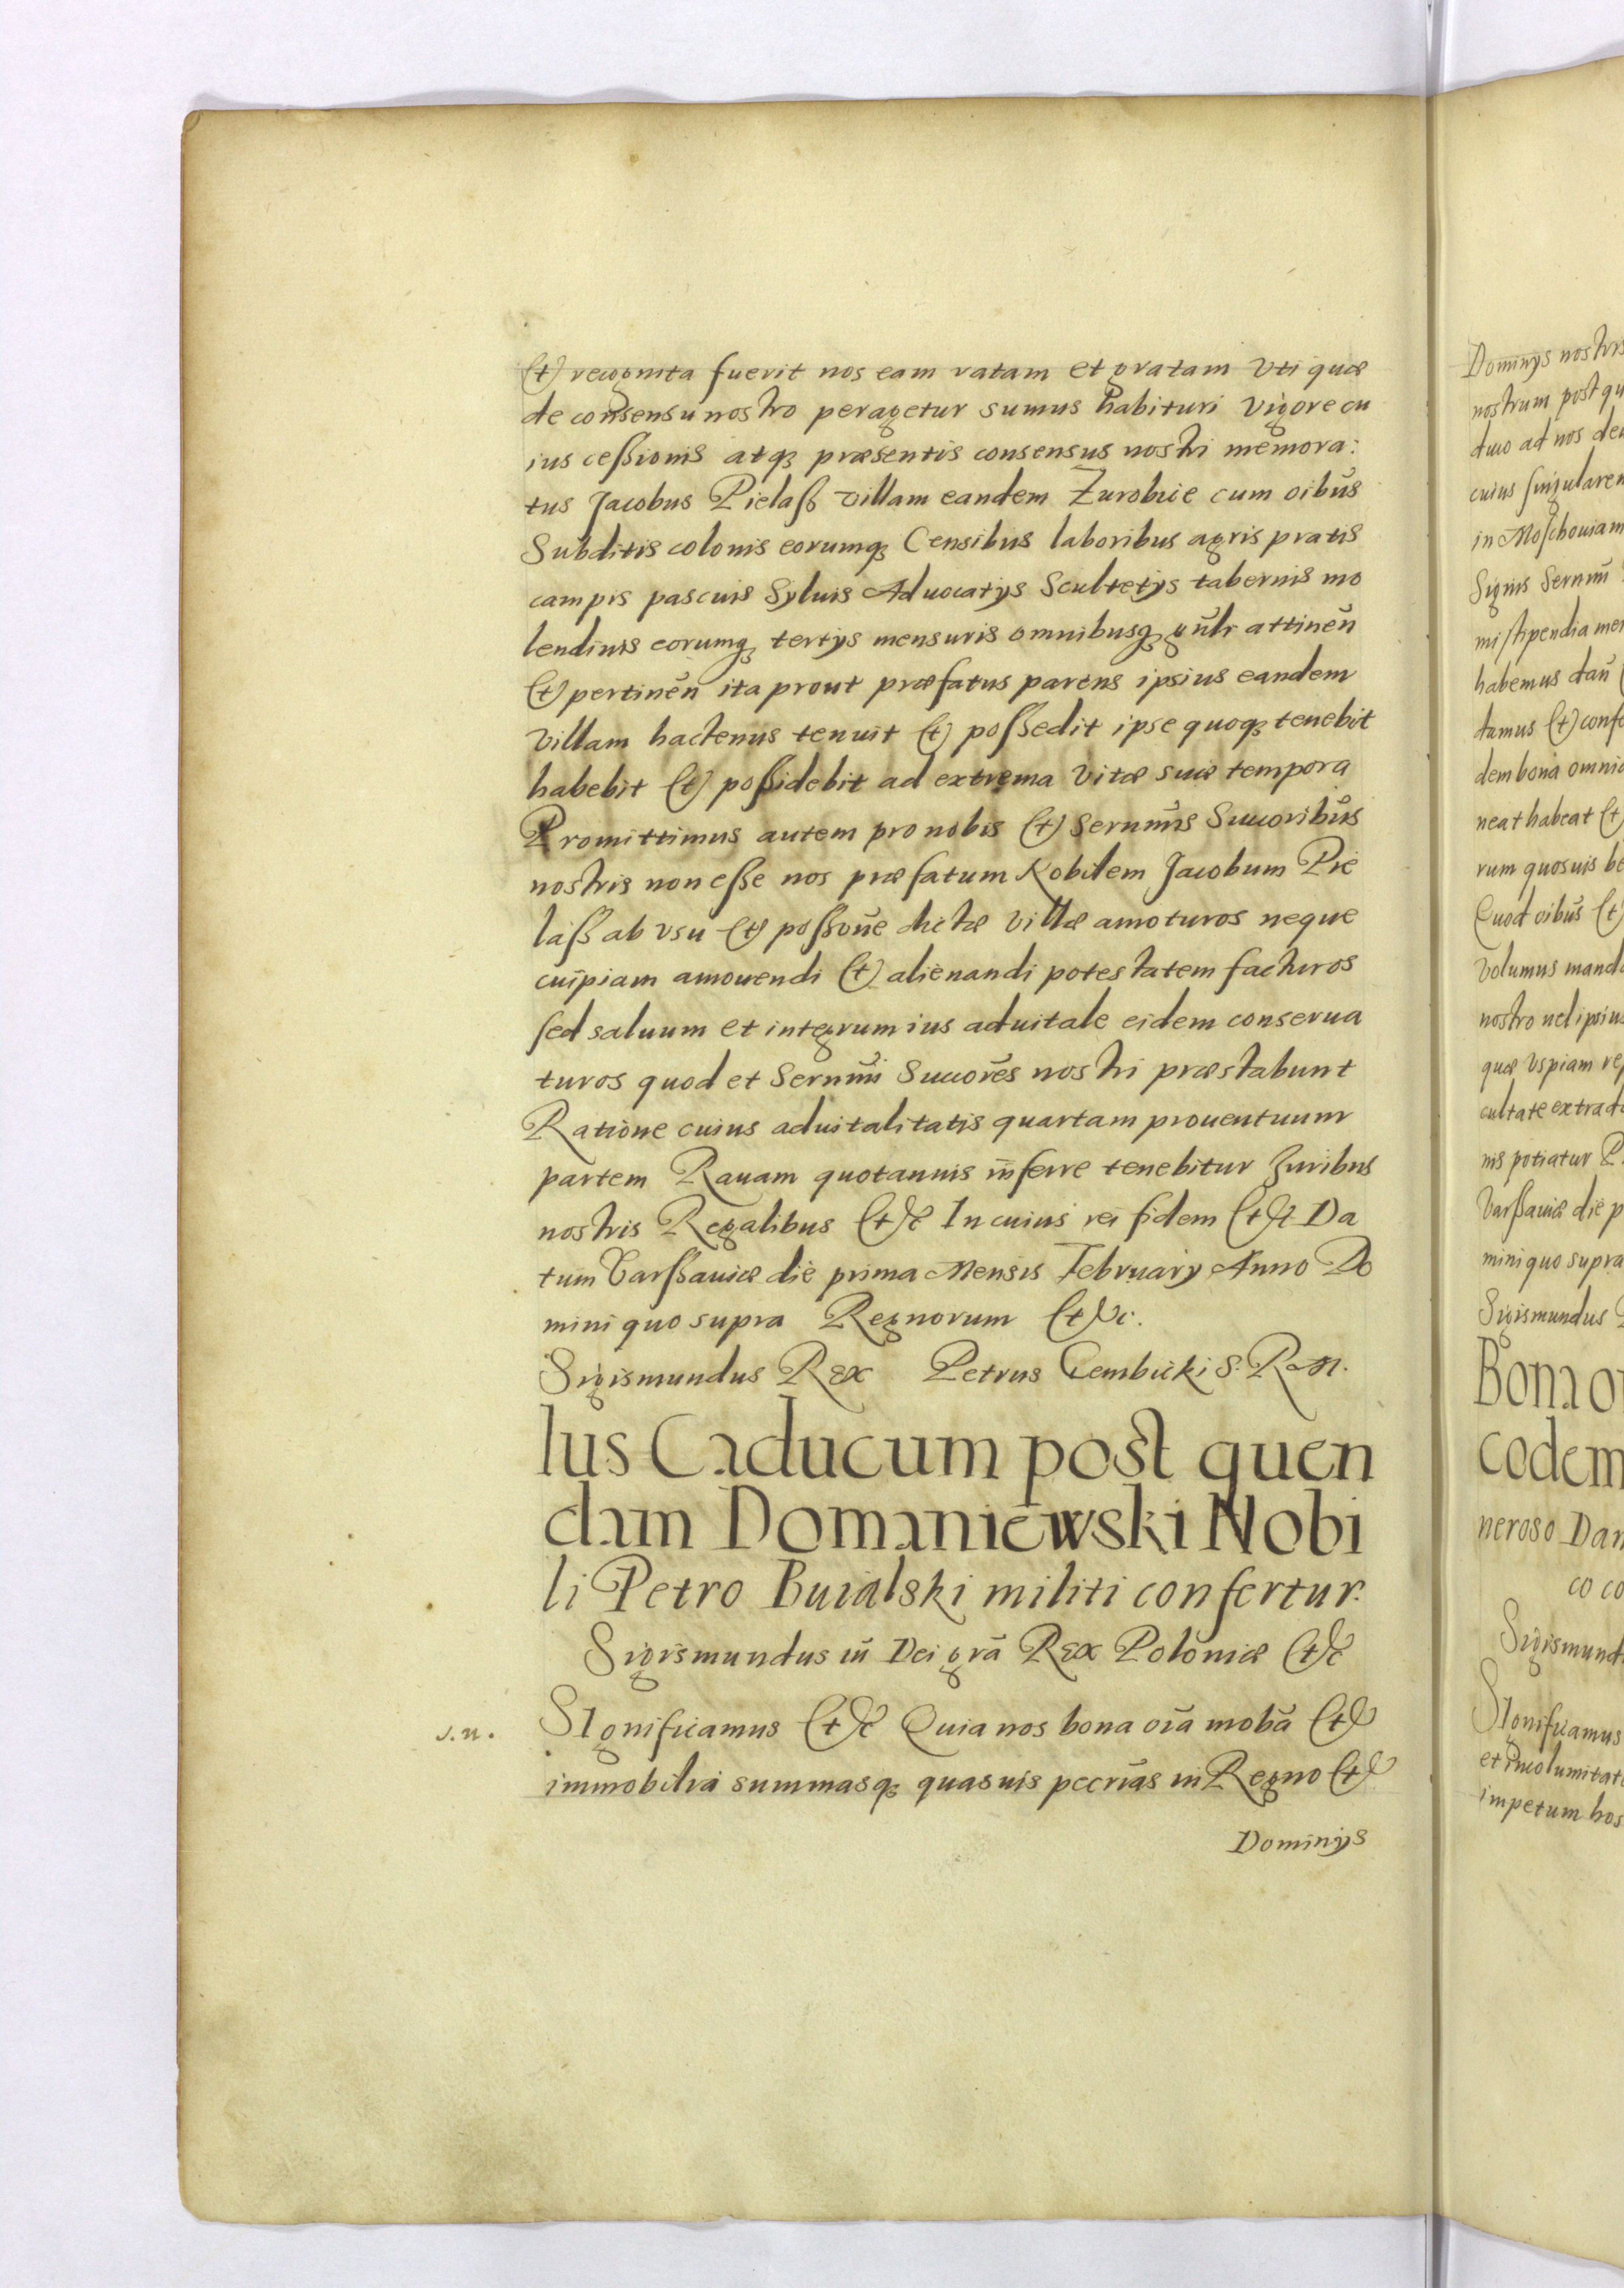 et recognita fuerit nos eam ratam et gratam Uti quæ
de consensu nostro peragetur sumus habituri Vigore cu
ius ceßionis atq præsentis consensus nostri memora:
tus Jacobus Pielaß villam eandem Zurobice cum oibūs
Subditis colonis eorumq Censibus laboribus agris pratis
campis pascuis Syluis Aduocatys Scultetys tabernis mo
lendinis eorumq tertys mensuris omnibusq gūli attinēn
et pertinēn ita prout præfatus parens ipsius eandem
Villam hactenus tenuit et poßedit ipse quoq tenebit
habebit et poßidebit ad extrema Vitæ suæ tempora
Promittimus autem pro nobis et Sernmīs Succoribūs
nostris non eße nos præfatum Nobilem Jacobum Pie
laß ab vsu et poßioūe dictæ Villæ amoturos neque
cuipiam amouendi et alienandi potestatem facturos
sed saluum et integrum ius aduitale eidem conserua
turos quod et Sernmī Succorēs nostri præstabunt
Ratione cuius aduitalitatis quartam prouentuum
partem Rauam quotannis inferre tenebitur Juribus
nostris Regalibus etc In cuius rei fidem etc Da
tum Varßauiæ die prima Mensis February Anno Do
mini quo supra Regnorum etc.
Sigismundus Rex Petrus Tembicki S. R. M.
Ius Caducum post quen
dam Domaniewski Nobi
li Petro Buialski militi confertur.
Sigismundus iii Dei grā Rex Poloniæ etc
J. n. SIgnificamus etc Quia nos bona oīa mobīa et
immobilia summasq quasuis pecrīas in Regno et
Dominys
Dominys nostris
nostrum post qu
duo ad nos de
cuius singularem
in Moschouiam
Signis Sernmī
mi stipendia mer
habemus dan
damus et conf
dem bona omnia
neat habeat et
rum quosuis be
Quod oibūs et
Volumus manda
nostro uel ipsius
quæ Uspiam re
cultate extrad
nis potiatur P
Varßauiæ die p
mini quo supra
Sigismundus
Bona o
codem
neroso Dan
co co
Sigismund
SIgnificamus
et incolumitat
impetum hos